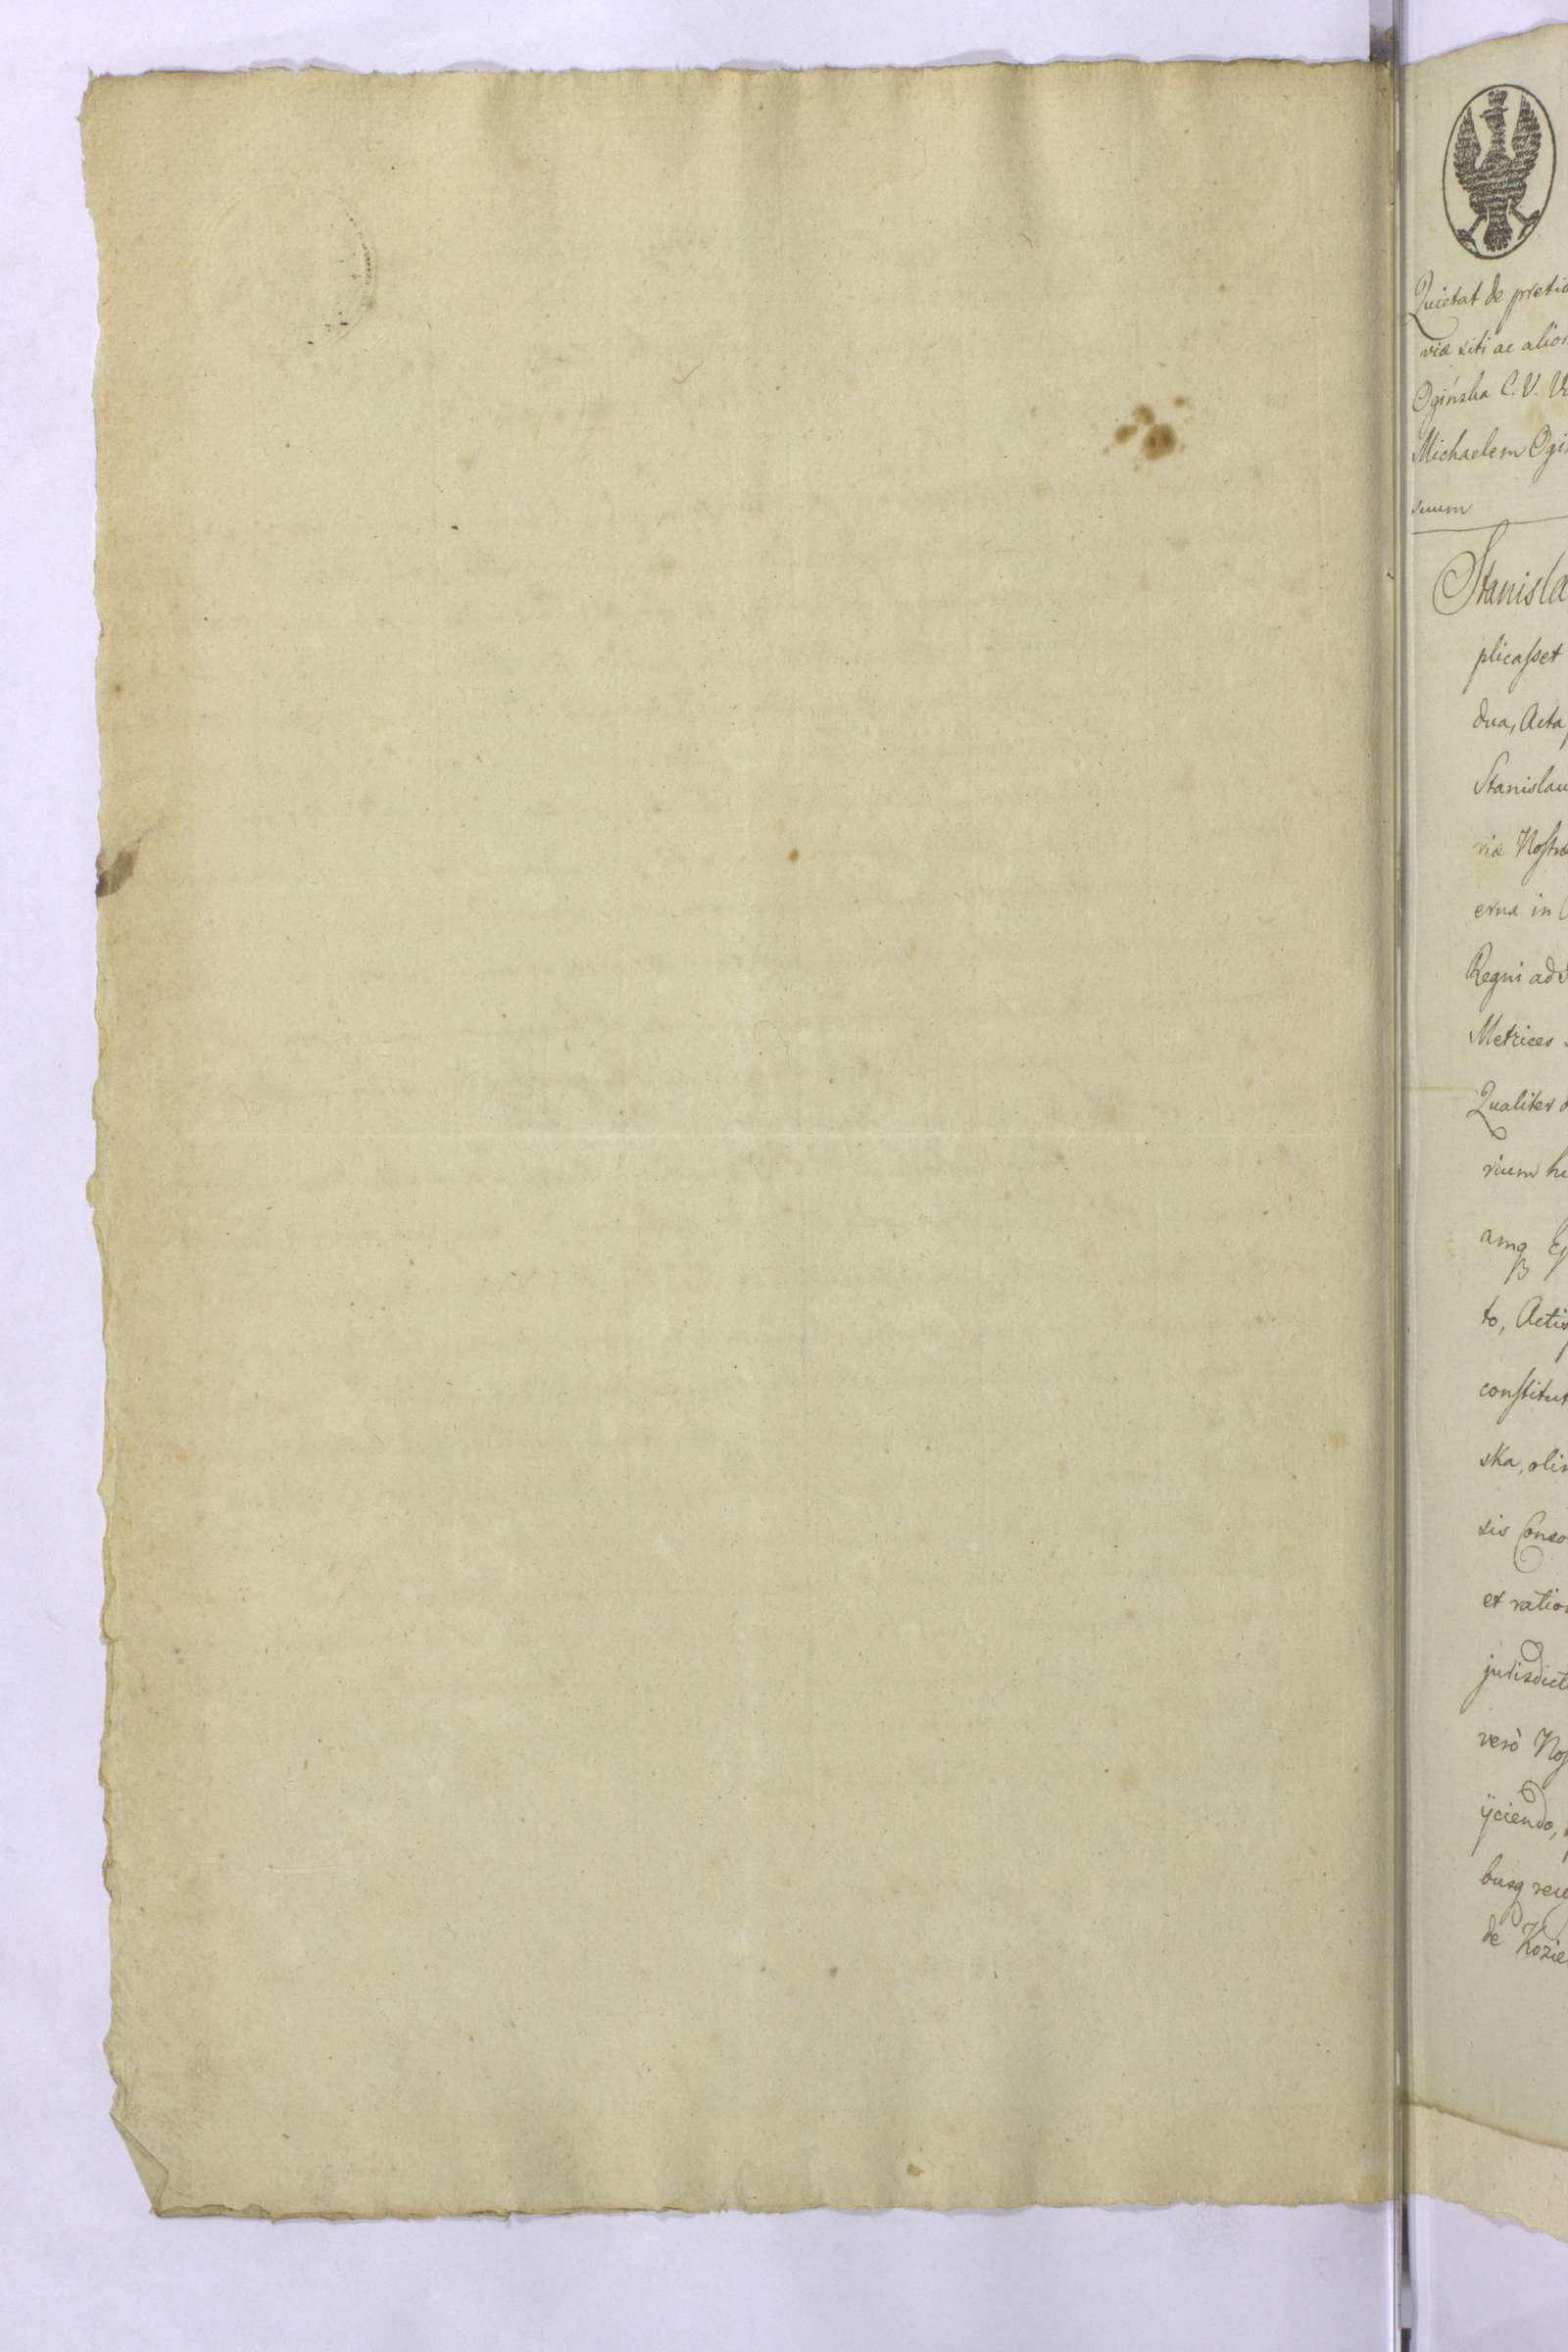 Quietat de pretio
viæ siti ac alior
Ogińska C. V.
Michaelem Ogi
suum
Stanisla
plicaſset
dua, Acta
Stanislau
riæ Noſtræ
erna in
Regni ad
Metrices
Qualiter
rium hu
amq
to, Actis
conſtitut
ska, olim
sis Conso
et ration
jurisdict
verò Noſ
ÿciendo,
busq reu
de Kozie